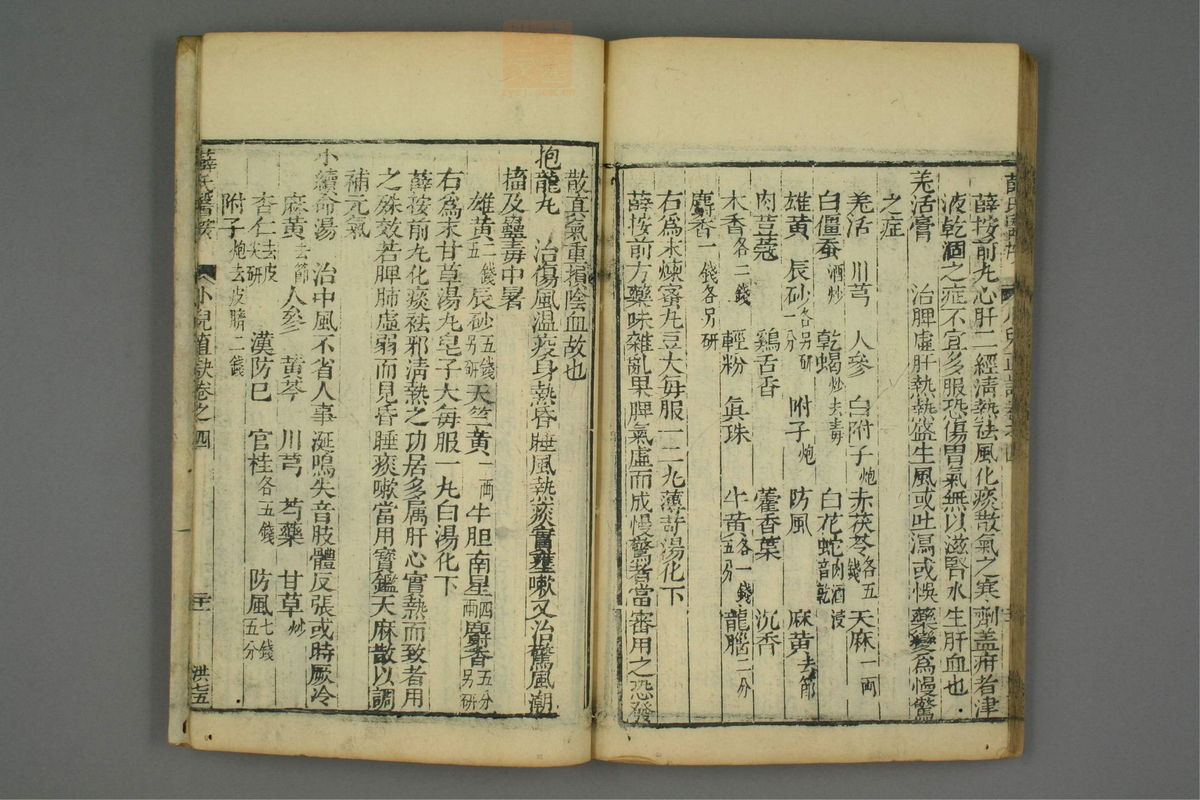 薛按前丸心肝二經清熱祛風化痰散氣之寒劑盖疳者津
液乾涸之症不宜多服恐傷胃氣無以滋腎水生肝血也
羌活膏 治脾虛肝熱熱盛生風或吐瀉或悞藥變為慢驚
之症
羌活 川芎 人參 白附子炮 赤茯苓各五錢 天麻一兩
白僵蚕酒炒 乾蝎炒去毒 白花蛇肉酒浸音乾
雄黃 辰砂各另研一分 附子炮 防風 麻黃去節
肉荳蔻 鷄舌香 藿香葉 沉香
木香各二錢 輕粉 眞珠 牛黃各一錢五分 龍腦二分
麝香一錢各另研
右為末煉蜜丸豆大每服一二丸薄荷湯化下
薛按前方藥味雜亂果脾氣虛而成慢驚者當審用之恐發
散真氣重損陰血故也
抱龍丸 治傷風溫疫身熱昏睡風熱痰實壅嗽又治驚風潮
搐及蠱毒中暑
雄黃二錢五 辰砂五錢另研 天竺黃一兩 牛胆南星四兩 麝香五分另研
右為末甘草湯丸皂子大每服一丸白湯化下
薛按前丸化痰祛邪清熱之功居多属肝心實熱而致者用
之殊效若脾肺虛弱而見昏睡痰嗽當用寶鑑天麻散以調
補元氣
小續命湯 治中風不省人事涎鳴失音肢體反張或時厥冷
麻黃去節 人參 黃芩 川芎 芍藥 甘草炒
杏仁去皮尖研 漢防巳 官桂各五錢 防風七錢五分
附子炮去皮臍二錢
薛氏醫按 小兒直訣卷之四 洪七五